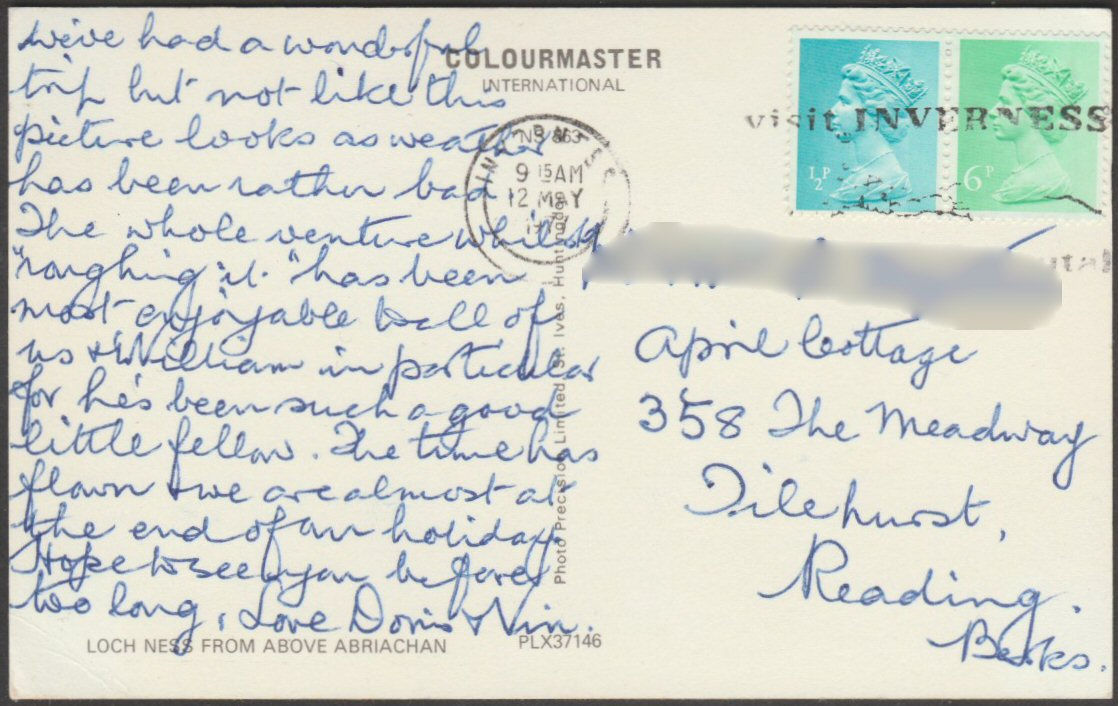 We've had a wonderful
trip but not like this
picture looks as weather
has been rather bad
The whole venture whilst
"roughing it" has been
most enjoyable to all of
us & William in particular
for he's been such a good
little fellow. The time has
flown & we are almost at
the end of our holiday.
Hope to see you before
too long, Love Doris & Vin.
COLOURMASTER
INTERNATIONAL
9 15 AM
12 MAY
visit INVERNESS
½P
6P
April Cottage
358 The Meadway
Tilehurst,
Reading.
Berks.
Photo Precision Limited, St. Ives, Huntingdon
LOCH NESS FROM ABOVE ABRIACHAN
PLX37146